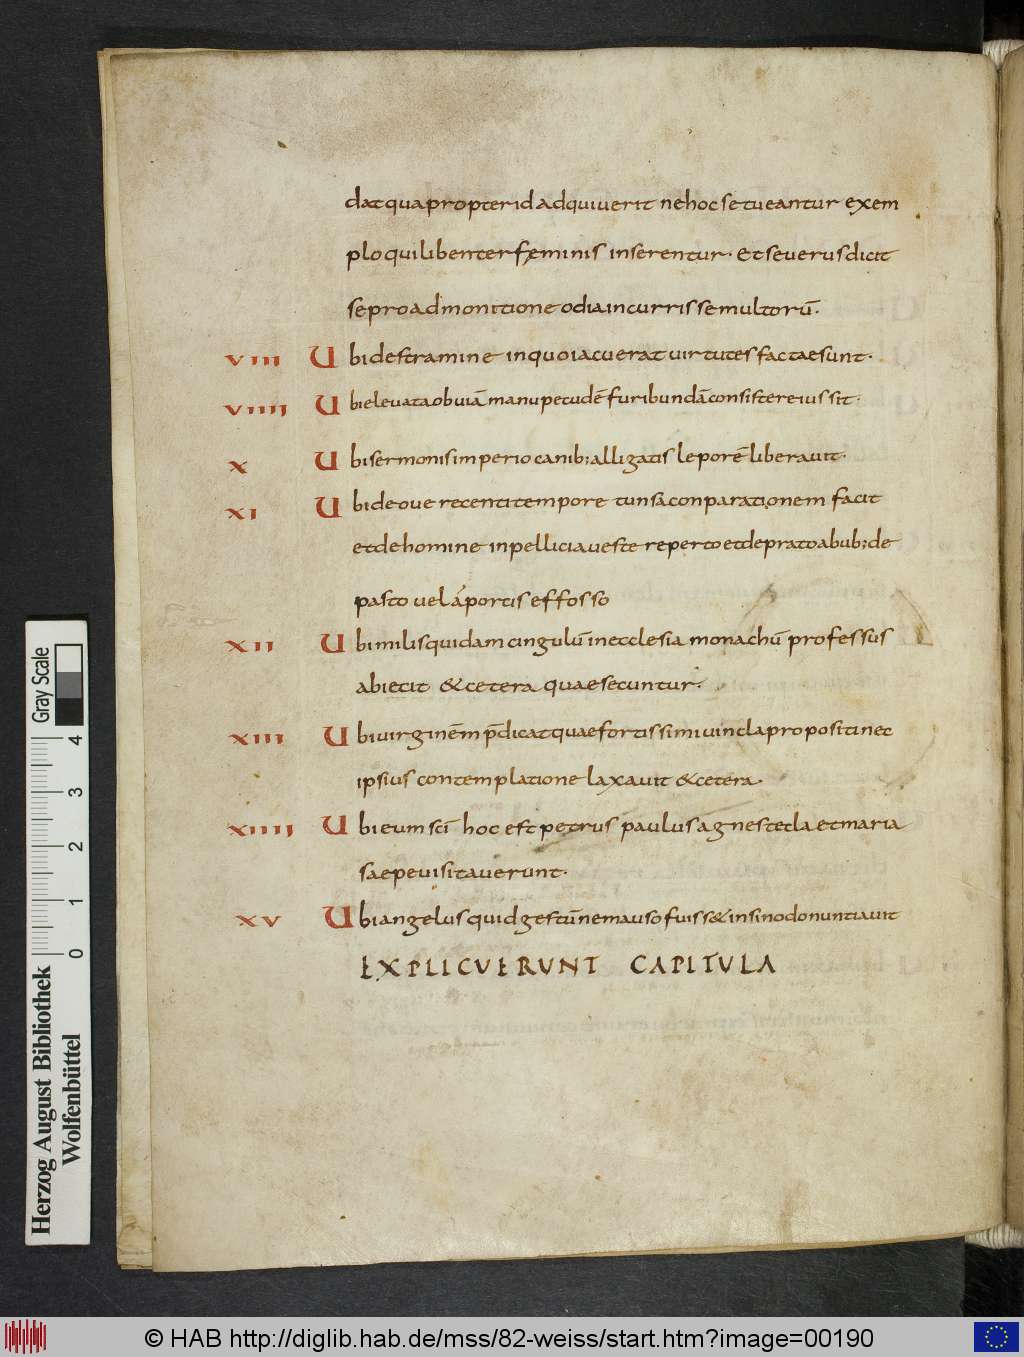 dat quapropter id adquiverit ne hoc se tueantur exem
plo qui libenter feminis inserentur. Et severus dicit
se pro admonitione odia incurrisse multorū.
VIII Ubi de stramine in quo iacuerat virtutes factae sunt.
VIIII Ubi elevata obviā manu pecudē furibundā consistere iussit.
X Ubi sermonis imperio canib; alligatis leporē liberavit.
XI Ubi de ove recenti tempore tunsa conparationem facit
et de homine in pellicia veste reperto et de prato a bub; de
pasto vel a portis effosso
XII Ubi milis quidam cingulū in ecclesia monachū professus
abiecit & cetera quae secuntur.
XIII Ubi virginēm p̄dicat quae fortissimi vincla propositi nec
ipsius contemplatione laxavit & cetera.
XIIII Ubi eum sc̄i hoc est petrus paulus agnes tecla et maria
saepe visitaverunt.
XV Ubi angelus quid gestū nemauso fuiss& in sinodo nuntiavit
EXPLICUERUNT CAPITULA
Gray Scale
4
3
2
1
0
Herzog August Bibliothek
Wolfenbüttel
© HAB http://diglib.hab.de/mss/82-weiss/start.htm?image=00190